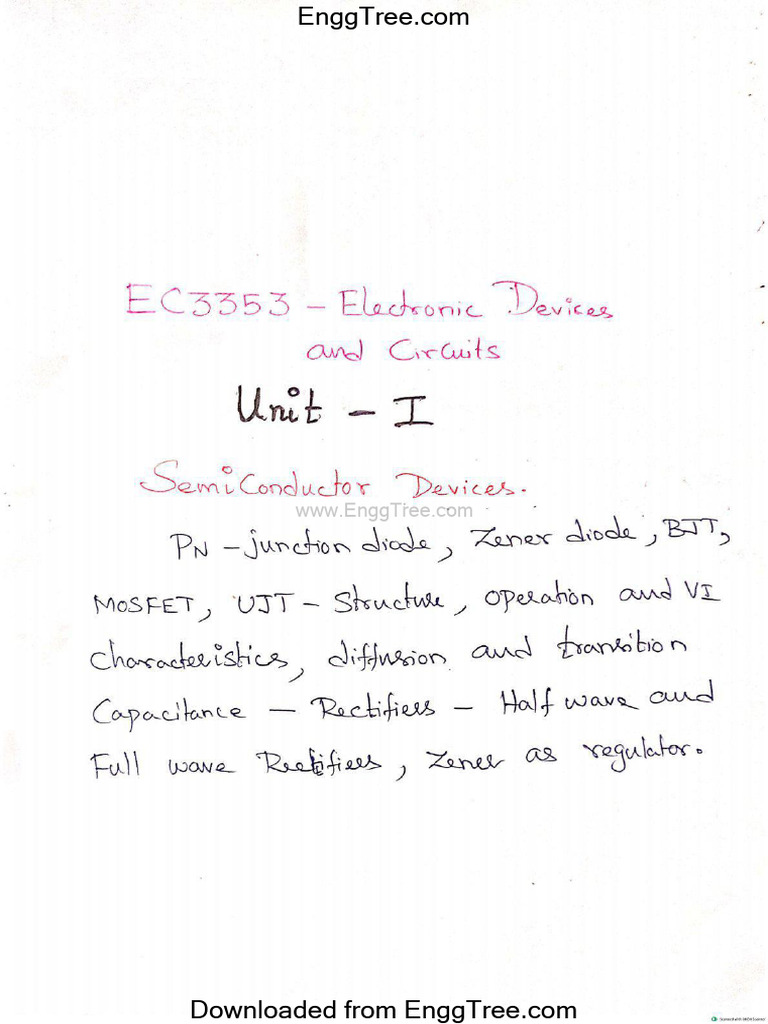 EnggTree.com
EC3353 - Electronic Devices
and Circuits
Unit - I
SemiConductor Devices.
www.EnggTree.com
PN - junction diode, Zener diode, BJT,
MOSFET, UJT - Structure, operation and VI
characteristics, diffusion and transition
Capacitance - Rectifiers - Half wave and
Full wave Rectifiers, Zener as regulator.
Downloaded from EnggTree.com